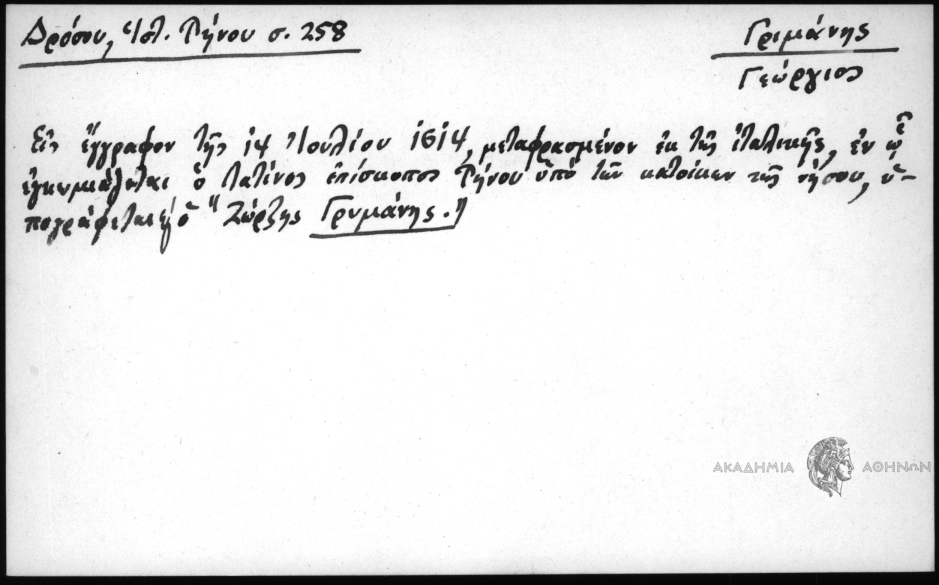 Δρόσου, Ἱστ. Τήνου σ. 258
Γριμάνης
Γεώργιος
Εἰς ἔγγραφον τῆς 14 Ἰουλίου 1614, μεταφρασμένον ἐκ τῆς ἰταλικῆς, ἐν ᾧ
ἐγκωμιάζεται ὁ Λατῖνος ἐπίσκοπος Τήνου ὑπὸ τῶν κατοίκων τῆς νήσου, ὑ-
πογράφεται ὁ "Ζώρζης Γρυμάνης."
ΑΚΑΔΗΜΙΑ ΑΘΗΝΩΝ